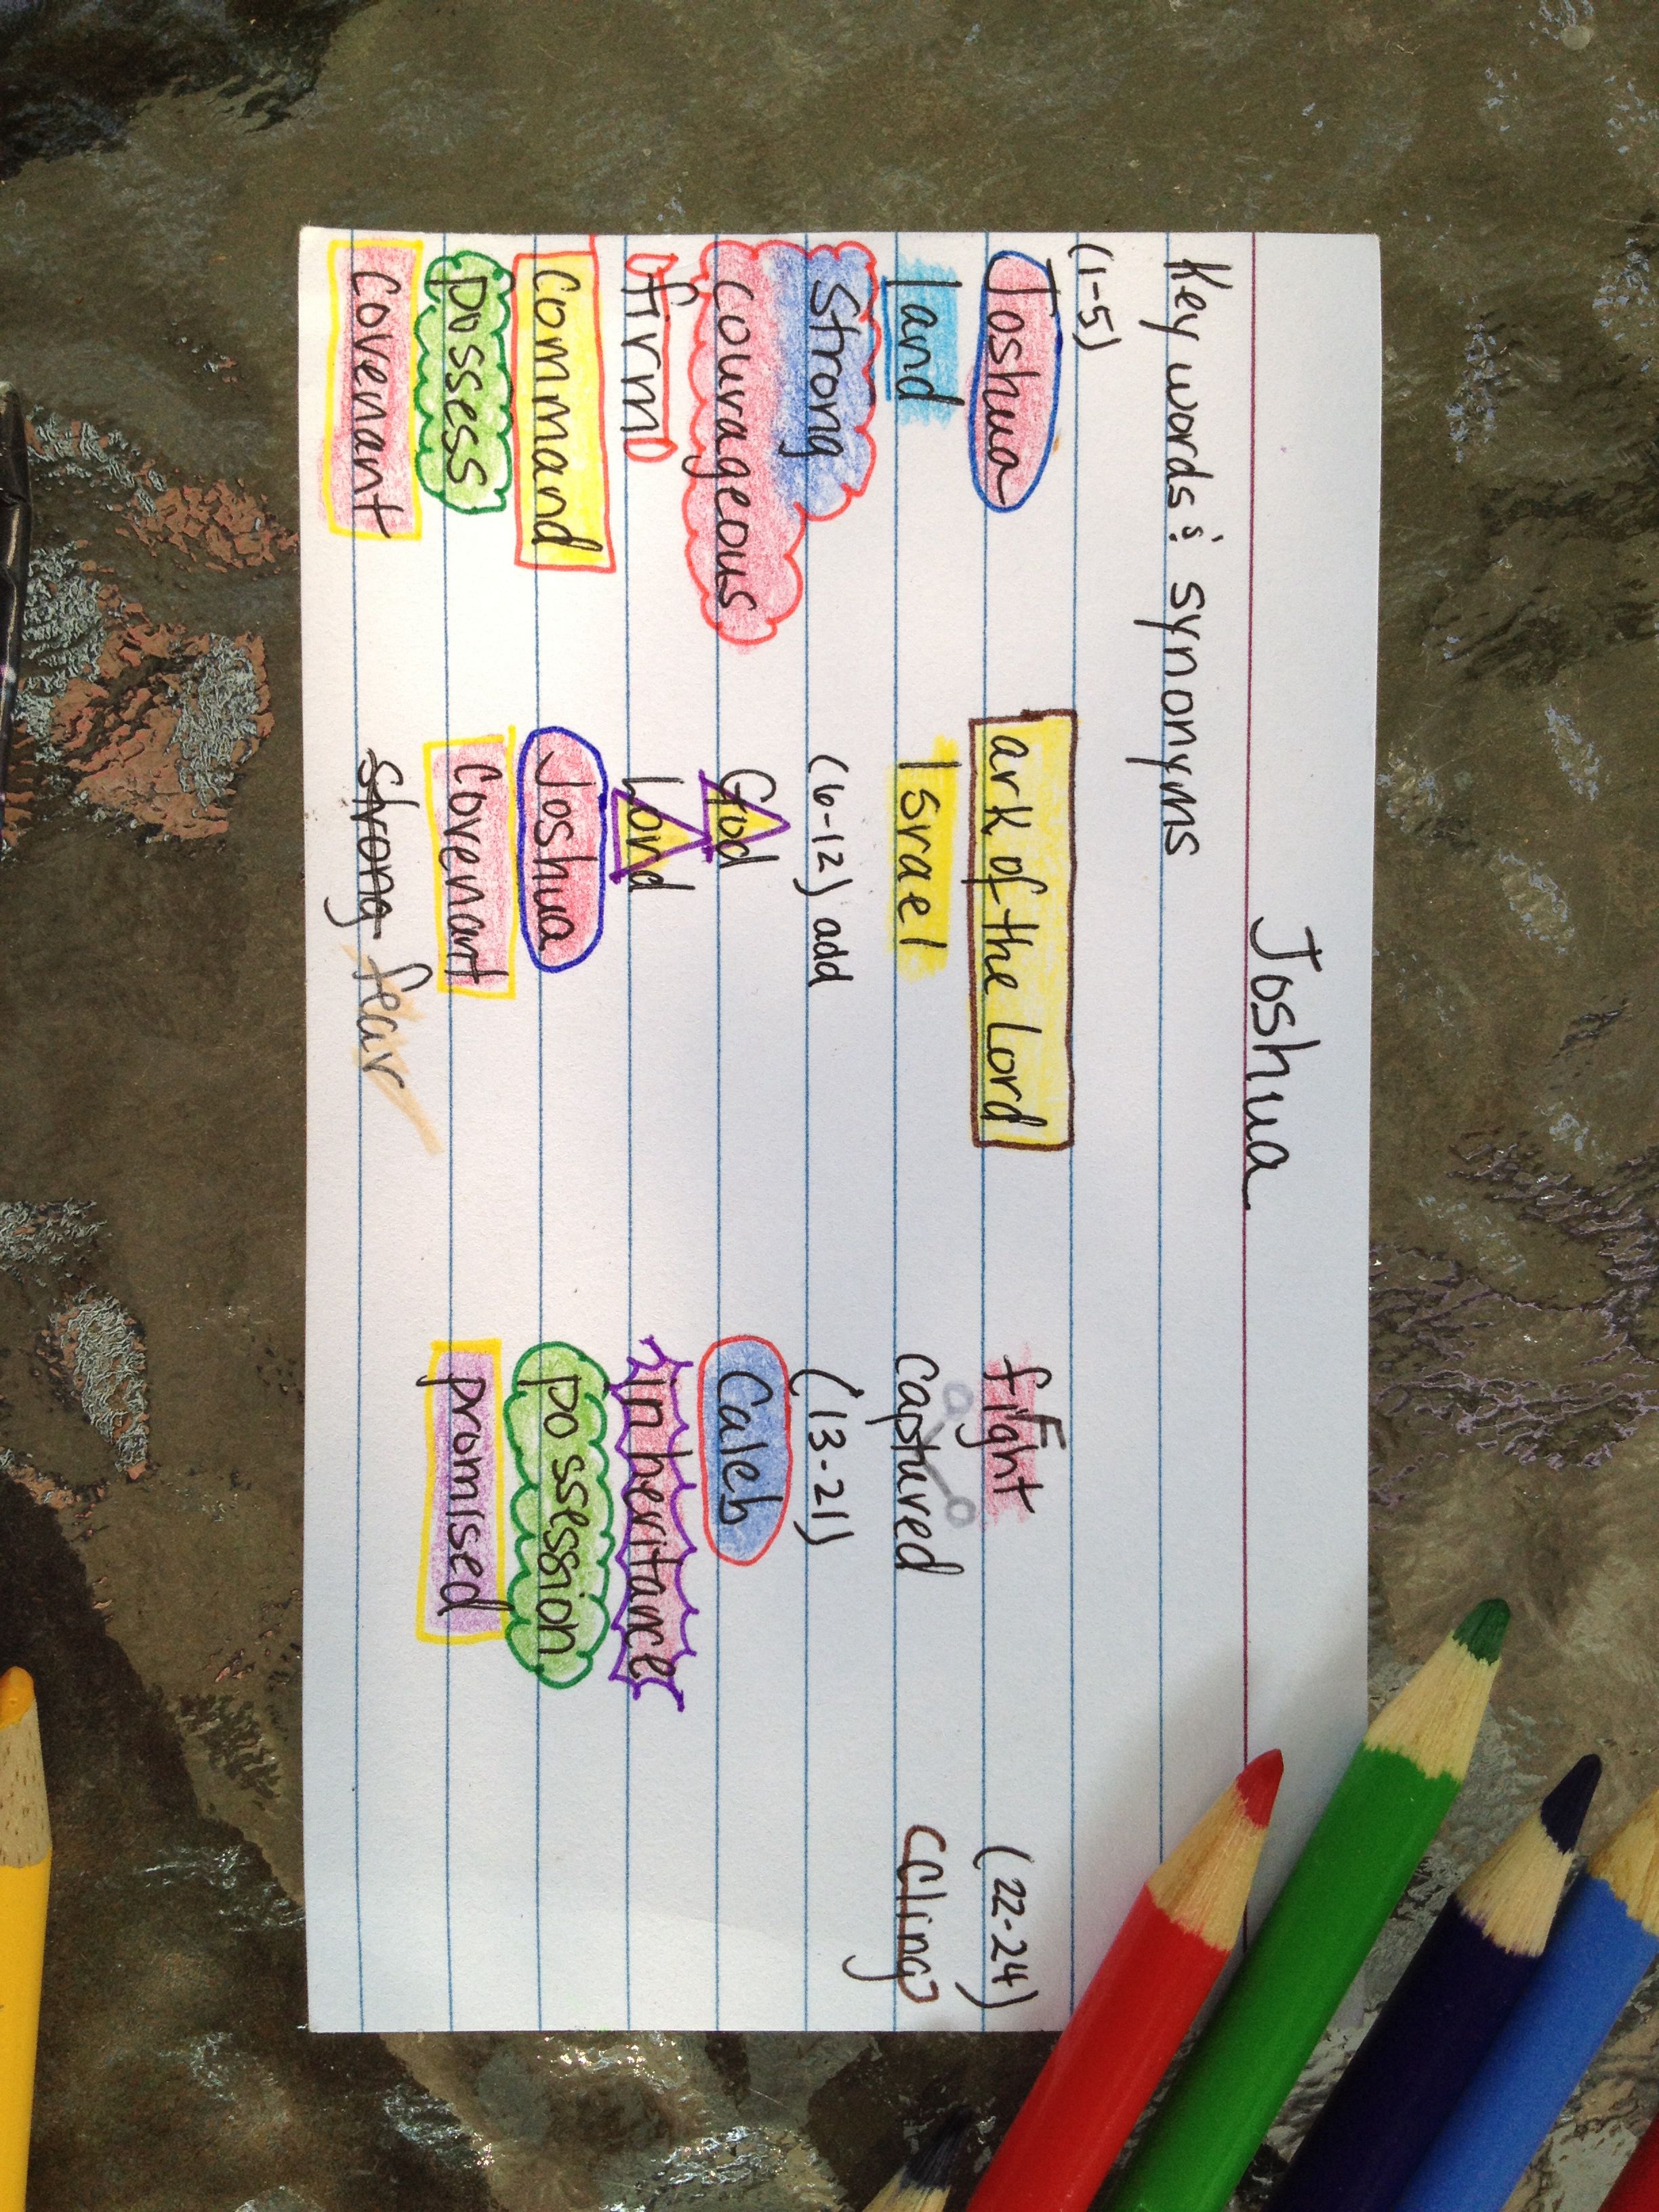 Joshua
Key words & synonyms
(1-5)
Joshua
land
Strong
Courageous
firm
Command
possess
Covenant
ark of the Lord
Israel
(6-12) add
God
Lord
Joshua
Covenant
strong fear
fight
captured
(13-21)
Caleb
inheritance
possession
promised
(22-24)
cling